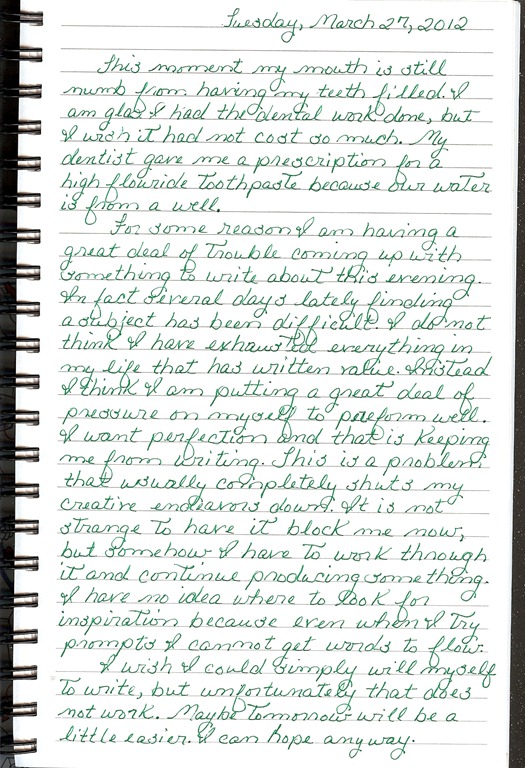 Tuesday, March 27, 2012
This moment my mouth is still
numb from having my teeth filled. I
am glad I had the dental work done, but
I wish it had not cost so much. My
dentist gave me a prescription for a
high flouride toothpaste because our water
is from a well.
For some reason I am having a
great deal of trouble coming up with
something to write about this evening.
In fact several days lately finding
a subject has been difficult. I do not
think I have exhausted everything in
my life that has written value. Instead
I think I am putting a great deal of
pressure on myself to pereform well.
I want perfection and that is keeping
me from writing. This is a problem
that usually completely shuts my
creative endeavors down. It is not
strange to have it block me now,
but somehow I have to work through
it and continue producing something.
I have no idea where to look for
inspiration because even when I try
prompts I cannot get words to flow.
I wish I could simply will myself
to write, but unfortunately that does
not work. Maybe tomorrow will be a
little easier. I can hope anyway.